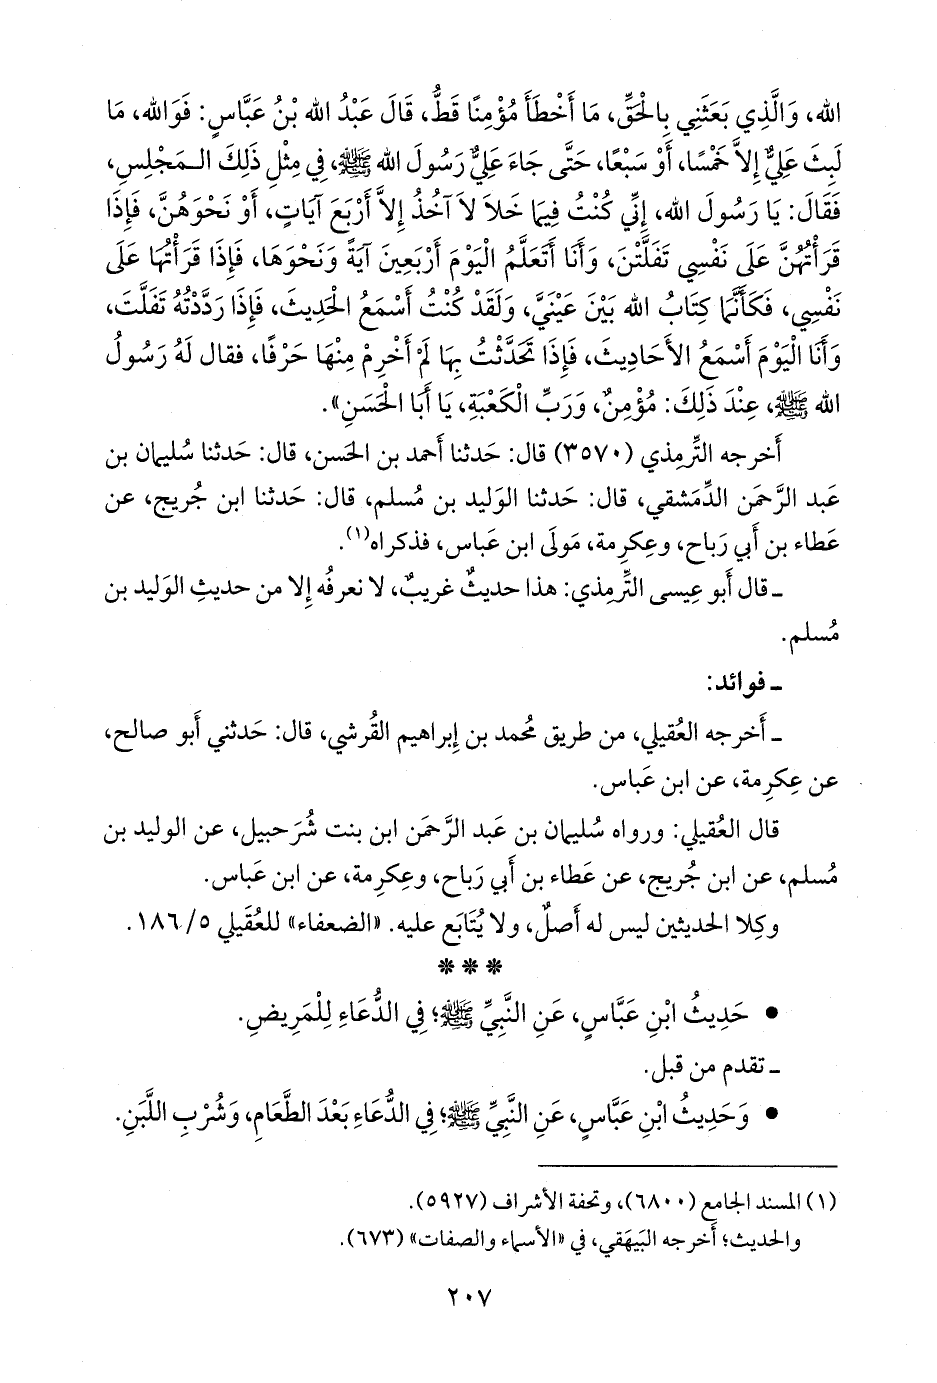 الله، وَالَّذِي بَعَثَنِي بِالْحَقِّ، مَا أَخْطَأَ مُؤْمِنًا قَطُّ، قَالَ عَبْدُ الله بْنُ عَبَّاسٍ: فَوَالله، مَا
لَبِثَ عَلِيٌّ إِلاَّ خَمْسًا، أَوْ سَبْعًا، حَتَّى جَاءَ عَلِيٌّ رَسُولَ الله ﷺ، فِي مِثْلِ ذَلِكَ الـمَجْلِسِ،
فَقَالَ: يَا رَسُولَ الله، إِنِّي كُنْتُ فِيمَا خَلاَ لاَ آخُذُ إِلاَّ أَرْبَعَ آيَاتٍ، أَوْ نَحْوَهُنَّ، فَإِذَا
قَرَأْتُهُنَّ عَلَى نَفْسِي تَفَلَّتْنَ، وَأَنَا أَتَعَلَّمُ الْيَوْمَ أَرْبَعِينَ آيَةً وَنَحْوَهَا، فَإِذَا قَرَأْتُهَا عَلَى
نَفْسِي، فَكَأَنَّمَا كِتَابُ الله بَيْنَ عَيْنَيَّ، وَلَقَدْ كُنْتُ أَسْمَعُ الْحَدِيثَ، فَإِذَا رَدَّدْتُهُ تَفَلَّتَ،
وَأَنَا الْيَوْمَ أَسْمَعُ الأَحَادِيثَ، فَإِذَا تَحَدَّثْتُ بِهَا لَمْ أَخْرِمْ مِنْهَا حَرْفًا، فقال لَهُ رَسُولُ
الله ﷺ، عِنْدَ ذَلِكَ: مُؤْمِنٌ، وَرَبِّ الْكَعْبَةِ، يَا أَبَا الْحَسَنِ».
أَخرجه التِّرمِذي (٣٥٧٠) قال: حَدثنا أَحمد بن الحَسن، قال: حَدثنا سُليمان بن
عَبد الرَّحمَن الدِّمَشقي، قال: حَدثنا الوَليد بن مُسلم، قال: حَدثنا ابن جُريج، عن
عَطاء بن أَبي رَباح، وعِكرِمة، مَولَى ابن عَباس، فذكراه(١).
ـ قال أَبو عِيسى التِّرمِذي: هذا حديثٌ غريبٌ، لا نعرفُه إِلا من حديثِ الوَليد بن
مُسلم.
ـ فوائد:
ـ أَخرجه العُقيلي، من طريق مُحمد بن إِبراهيم القُرشي، قال: حَدثني أَبو صالح،
عن عِكرِمة، عن ابن عَباس.
قال العُقيلي: ورواه سُليمان بن عَبد الرَّحمَن ابن بنت شُرَحبيل، عن الوليد بن
مُسلم، عن ابن جُريج، عن عَطاء بن أَبي رَباح، وعِكرِمة، عن ابن عَباس.
وكِلا الحديثين ليس له أَصلٌ، ولا يُتابَع عليه. «الضعفاء» للعُقَيلي ٥/ ١٨٦.
* * *
• حَدِيثُ ابْنِ عَبَّاسٍ، عَنِ النَّبِيِّ ﷺ؛ فِي الدُّعَاءِ لِلْمَرِيضِ.
ـ تقدم من قبل.
• وَحَدِيثُ ابْنِ عَبَّاسٍ، عَنِ النَّبِيِّ ﷺ؛ فِي الدُّعَاءِ بَعْدَ الطَّعَامِ، وَشُرْبِ اللَّبَنِ.
(١) المسند الجامع (٦٨٠٠)، وتحفة الأشراف (٥٩٢٧).
والحديث؛ أخرجه البَيهَقي، في «الأسماء والصفات» (٦٧٣).
٢٠٧